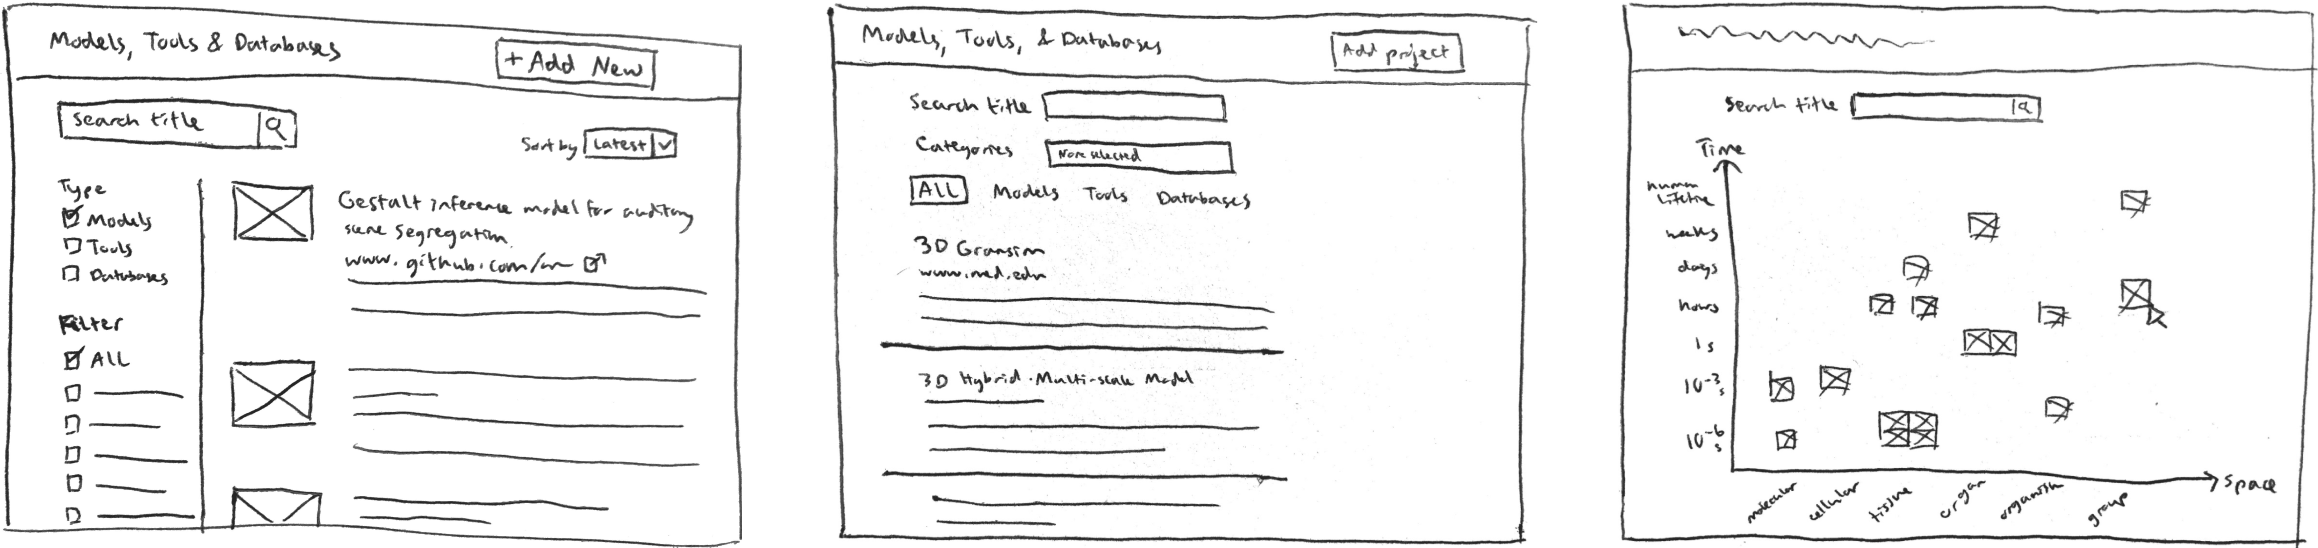 Models, Tools & Databases
+ Add New
Search title
Sort by Latest
Type
Models
Tools
Databases
Filter
ALL
Gestalt inference model for auditory
scene segregation.
www.github.com/
Models, Tools, & Databases
Add project
Search title
Categories None selected
ALL Models Tools Databases
3D Gransim
www.med.edu
3D Hybrid Multi-scale Model
Search title
Time
human
lifetime
weeks
days
hours
1s
10⁻³s
10⁻⁶s
molecular cellular tissue organ organism group
Space